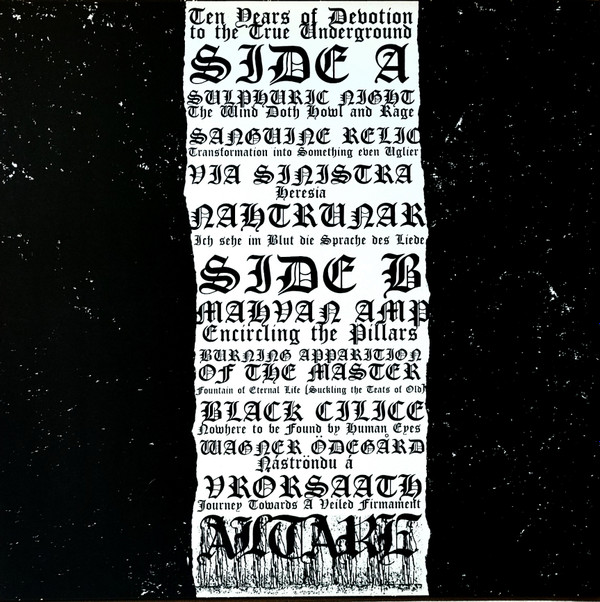 Ten Years of Devotion
to the True Underground
SIDE A
SULPHURIC NIGHT
The Wind Doth Howl and Rage
SANGUINE RELIC
Transformation into Something even Uglier
VIA SINISTRA
Heresia
NAHTRUNAR
Ich sehe im Blut die Sprache des Liede
SIDE B
MAHVAN AMP
Encircling the Pillars
BURNING APPARITION
OF THE MASTER
Fountain of Eternal Life (Suckling the Teats of Old)
BLACK CILICE
Nowhere to be Found by Human Eyes
WAGNER ÖDEGÅRD
Náströndu á
VRORSAATH
Journey Towards A Veiled Firmament
ALTARE